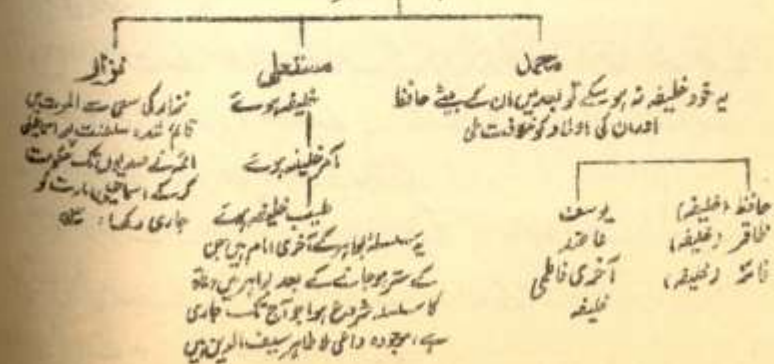 محمد
یہ خود خلیفہ نہ ہو سکے تو بعد میں ان کے بیٹے حافظ
اور ان کی اولاد کو خلافت ملی
حافظ (خلیفہ)
ظافر (خلیفہ)
فائز (خلیفہ)
یوسف
عاضد
آخری فاطمی
خلیفہ
مستعلی
خلیفہ ہوئے
آمر خلیفہ ہوئے
طیب خلیفہ ہوئے
یہ سلسلہ بواہر کے آخری امام ہیں جن
کے ستر ہو جانے کے بعد بواہر میں دعاۃ
کا سلسلہ شروع ہوا جو آج تک جاری
ہے، موجودہ داعی ملا طاہر سیف الدین ہیں
نزار
نزار کی سعی سے الموت میں
قائم شدہ سلطنت پر اسماعیلی
ائمہ نے صدیوں تک حکومت
کر کے اسماعیلی امارت کو
جاری رکھا۔